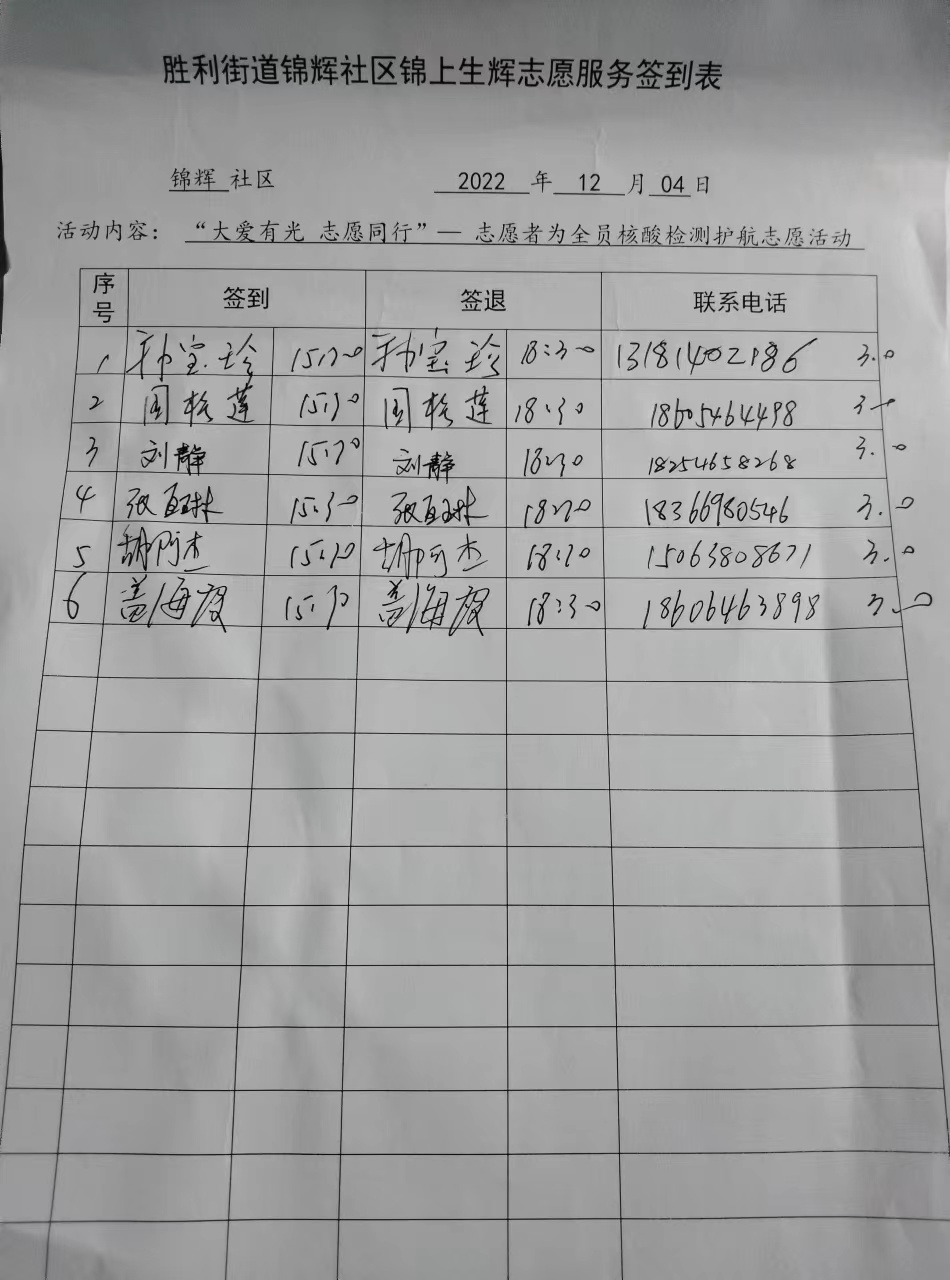 胜利街道锦辉社区锦上生辉志愿服务签到表
锦辉 社区 2022 年 12 月 04 日
活动内容： “大爱有光 志愿同行”— 志愿者为全员核酸检测护航志愿活动
序号 签到 签退 联系电话
1 孙宝珍 15:30 孙宝珍 18:30 13181402186 3.0
2 周 莲 15:30 周 莲 18:30 18605464498 3.0
3 刘静 15:30 刘静 18:30 18254658268 3.0
4 15:30 18:30 18366980546 3.0
5 胡阿杰 15:30 胡阿杰 18:30 15063808671 3.0
6 盖海霞 15:30 盖海霞 18:30 18606463898 3.0